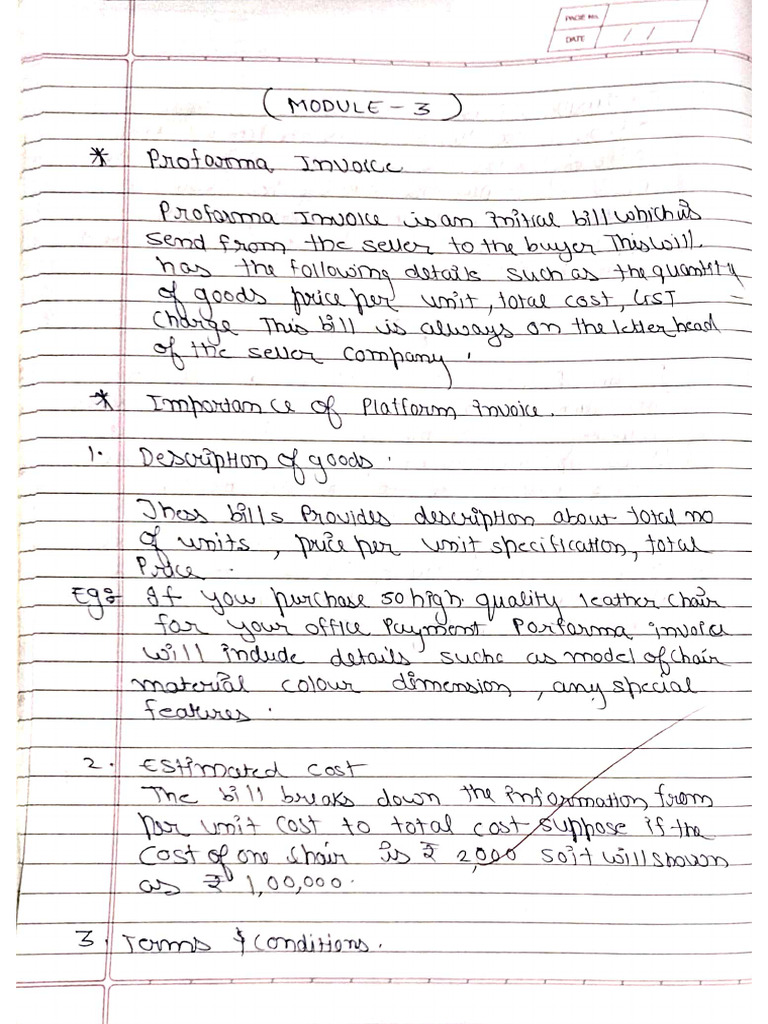 PAGE No.
DATE / /
(MODULE - 3)
* Profarma Invoice
Profarma Invoice is an Initial bill which is
send from the seller to the buyer This will
has the following details such as the quantity
of goods price per unit, total cost, GST
Charge This bill is always on the letter head
of the seller company.
* Importance of Platform invoice.
1. Description of goods.
Thess bills Provides description about total no
of units, price per unit specification, total
Price.
Eg:- If you purchase 50 high quality leather chair
for your office Payment Porfarma invoice
will include details suche as model of chair
material colour dimension, any special
features.
2. Estimated cost
The bill breaks down the information from
per unit cost to total cost suppose if the
cost of one chair is ₹ 2,000 so it will shown
as ₹ 1,00,000.
3. Terms & Conditions.